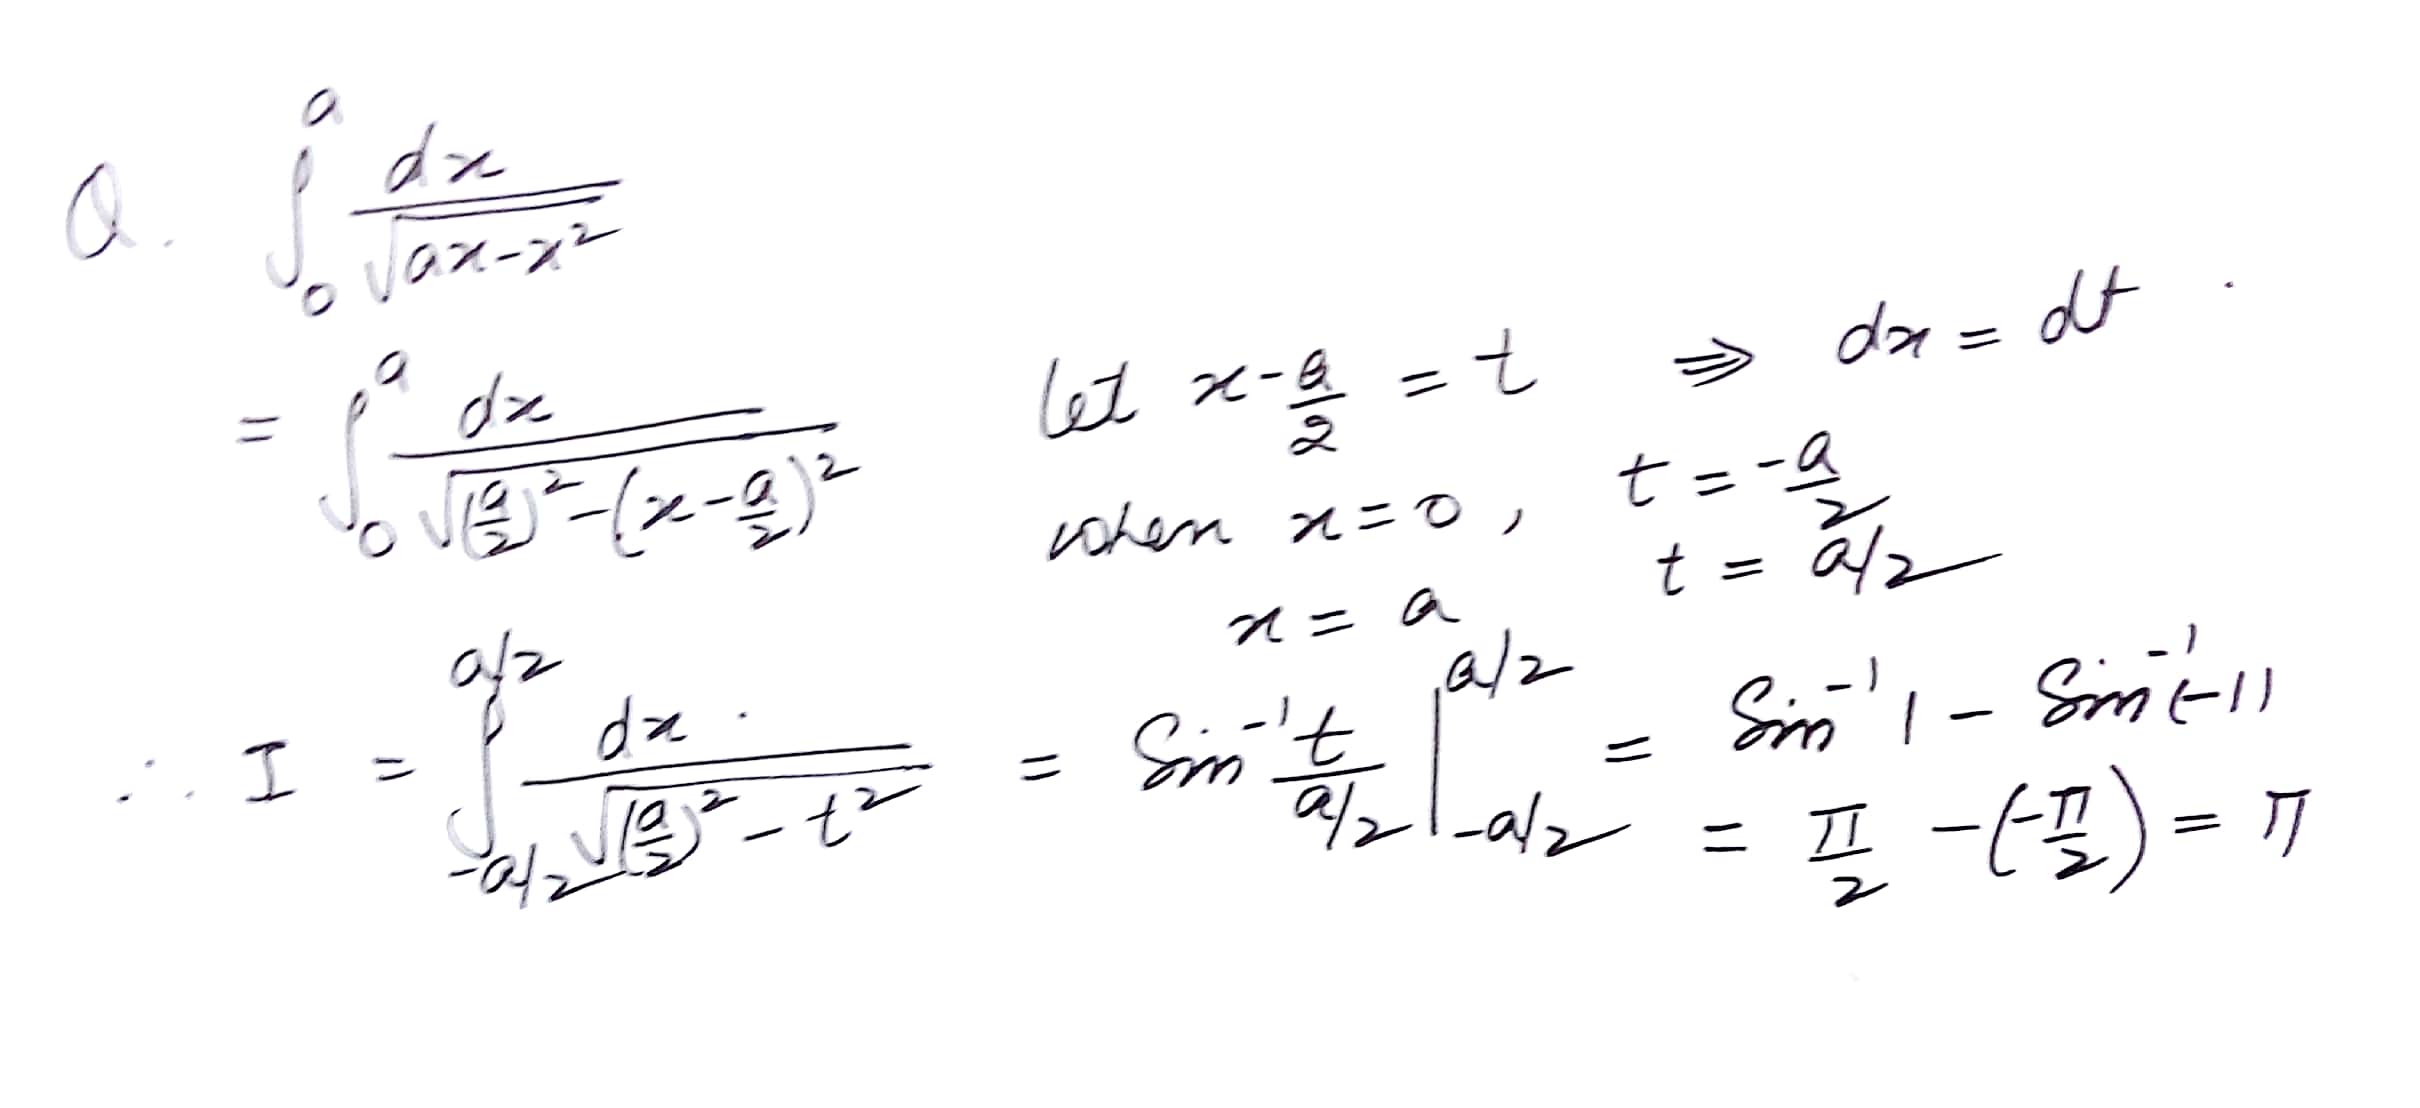 Q. ∫₀ᵃ dx / √(ax-x²)
= ∫₀ᵃ dx / √((a/2)² - (x - a/2)²)    let x - a/2 = t ⇒ dx = dt.
when x = 0, t = -a/2
x = a    t = a/2
∴ I = ∫_{-a/2}^{a/2} dx / √((a/2)² - t²) = Sin⁻¹ t/(a/2) |_{-a/2}^{a/2} = Sin⁻¹ 1 - Sin⁻¹(-1)
= π/2 - (-π/2) = π